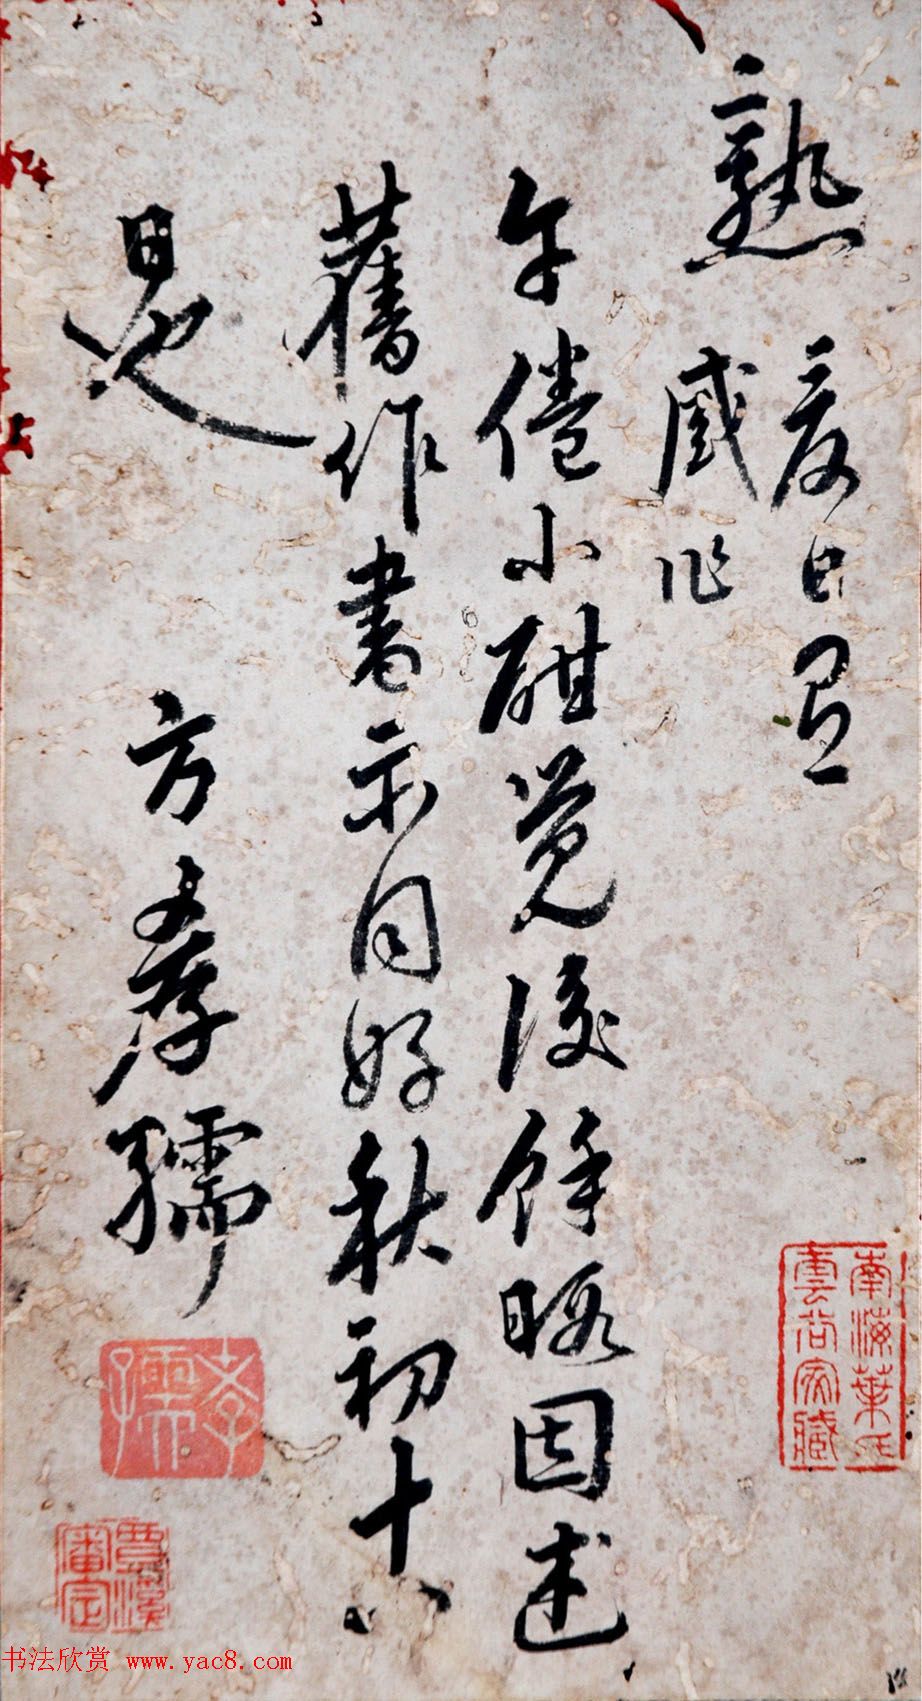 熟
感作
午倦小酣覺後餘暇因述
舊作書示同好秋初十八
日也 方孝孺
南海葉氏
雲谷家藏
孝孺
審定
书法欣赏 www.yac8.com